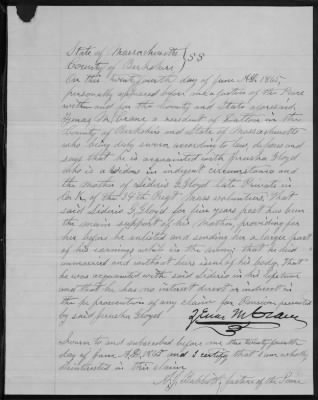 State of Massachusetts } SS
County of Berkshire
On this twenty fourth day of June A.D. 1865,
personally appeared before me a Justice of the Peace
within and for the County and State aforesaid,
Zenas M. Crane a resident of Dalton in the
County of Berkshire and State of Massachusetts
who being duly sworn according to law, deposes and
says that he is acquainted with Jerusha Gloyd
who is a in indigent circumstances and
the mother of Liderio G. Gloyd late Private in
Co. K, of the 34th Regt Mass volunteers. That
said Liderio G. Gloyd for five years past has been
the main support of his Mother, providing for
her before he enlisted and sending her a large part
of his earning while in the Army; that he died
unmarried and without heirs issue of his body, that
he was acquainted with said Liderio in his lifetime
and that he has no interest direct or indirect in
the prosecution of any claim for Pension presented
by said Jerusha Gloyd
Zenas M. Crane
Sworn to and subscribed before me this twenty fourth
day of June A.D. 1865 and I certify that I am wholly
disinterested in this claim
Justice of the Peace